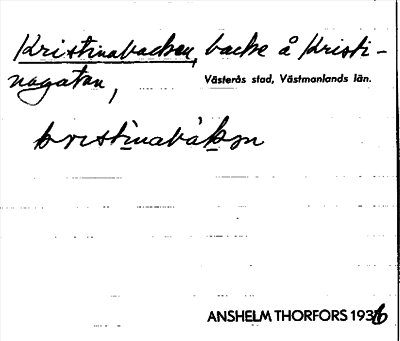 Kristinabacken, backe å Kristi-
nagatan,
Västerås stad, Västmanlands län.
kristinabàkən
ANSHELM THORFORS 1936